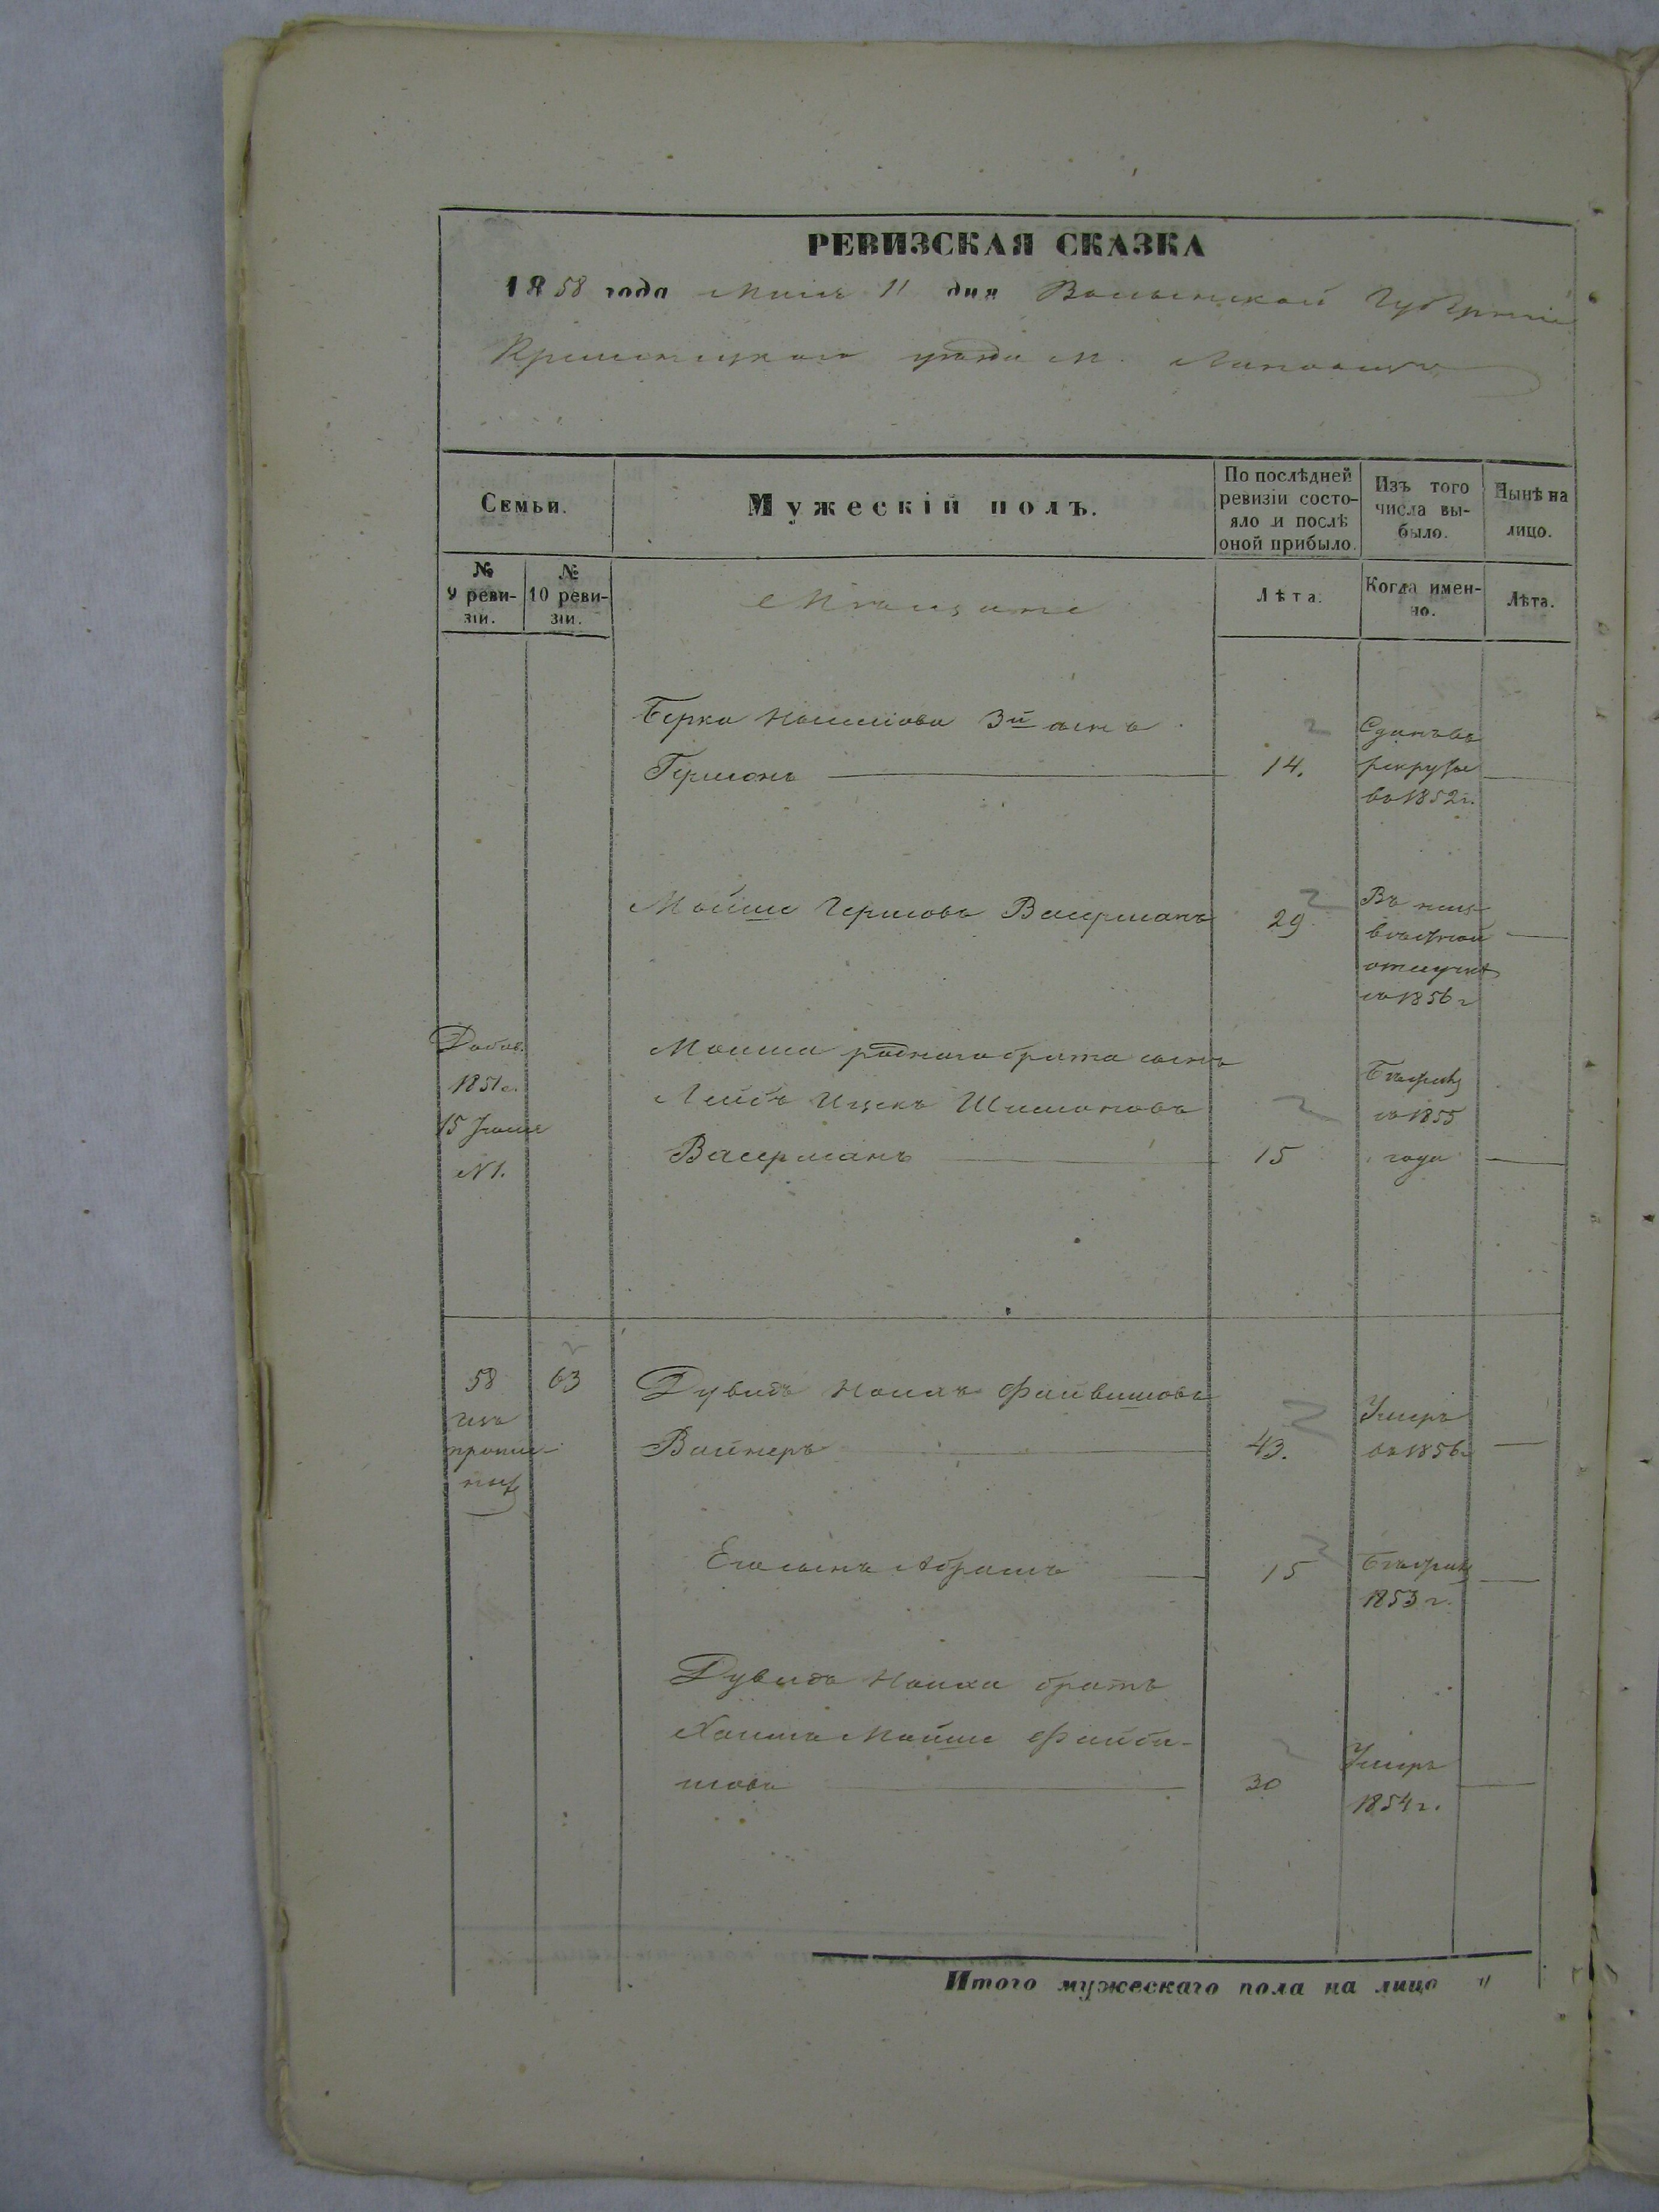 РЕВИЗСКАЯ СКАЗКА
1858 года Мая 11 дня Волынской Губерніи
Кременецкаго уѣзда м.
Семьи.
Мужескій полъ.
По послѣдней
ревизіи состо-
яло и послѣ
оной прибыло.
Изъ того
числа вы-
было.
Нынѣ на
лицо.
№
9 реви-
зіи.
№
10 реви-
зіи.
Мѣщане
Лѣта.
Когда имен-
но.
Лѣта.
Берка 3й сынъ
Гершонъ 14.
Сданъ въ
рекруты
въ 1852 г.
Мойше Гершовъ Васерманъ 29
Въ неиз-
вѣстной
отлучкѣ
съ 1856 г
Добав.
1851 г.
15 Іюня
№ 1.
Мойша роднаго брата сынъ
Лейбъ Ицекъ Шимоновъ
Васерманъ 15
съ 1855
года
58 63
Дувидъ Файвишовъ
Вайнеръ 43.
Умеръ
въ 1856 г
Его сынъ Абрамъ 15
1853 г.
Дувидъ братъ
Хаимъ Мойше Файви-
шовъ 30
Умеръ
1854 г.
Итого мужескаго пола на лицо "